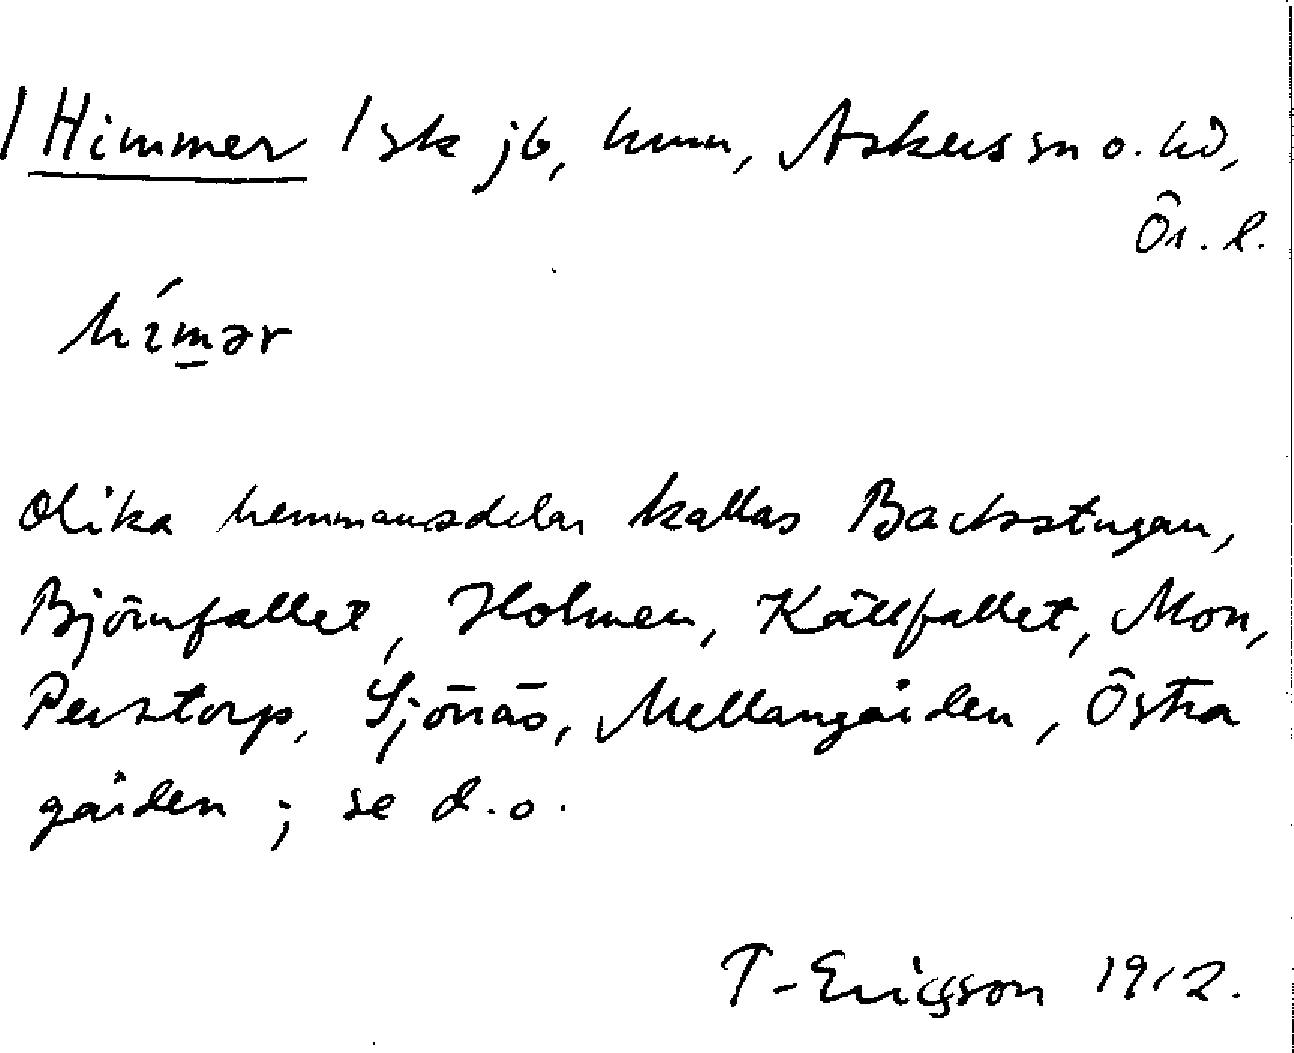 / Himmer / sk jb, hmn, Askers sn o. hd,
Ör. l.
hímər
Olika hemmansdelar kallas Backstugan,
Björnfallet, Holmen, Källfallet, Mon,
Perstorp, Sjönäs, Mellangården, Östra
gården ; se d.o.
T-Ericsson 1912.